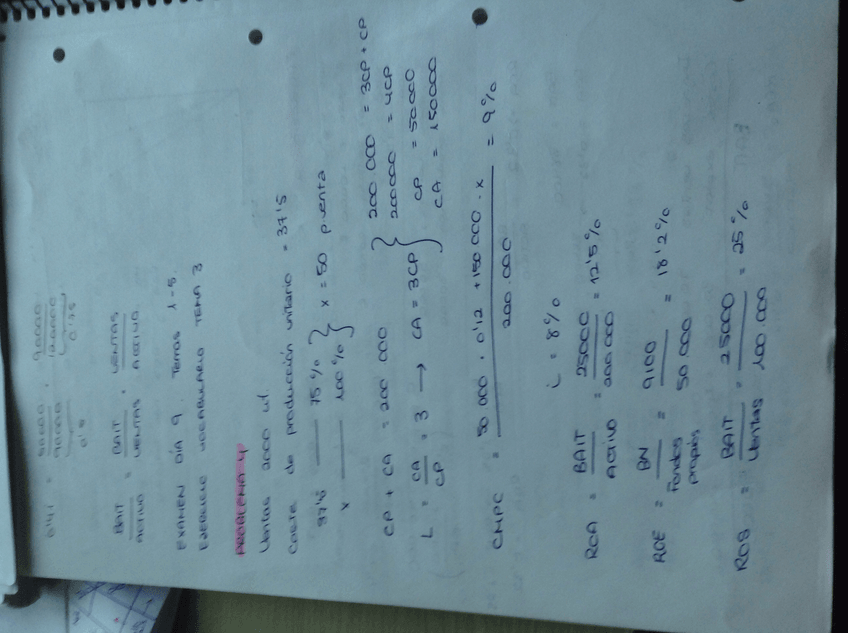 0'41 = 50.000 / 90.000 · 90.000 / 120.000
0'5 0'75
BAIT / ACTIVO = BAIT / VENTAS · VENTAS / ACTIVO
EXAMEN DÍA 9 Temas 1-5.
EJERCICIO VOCABULARIO TEMA 3
PROBLEMA 4
Ventas 2000 ud.
coste de producción unitario = 37'5
37'5 — 75 % } x = 50 p.venta
x — 100 %
CP + CA = 200 000 } 200 000 = 3CP + CP
200000 = 4CP
L = CA / CP = 3 → CA = 3CP } CP = 50000
CA = 150000
CMPC = 50 000 · 0'12 + 150 000 · x / 200.000 = 9%
i = 8%
ROA = BAIT / Activo = 25000 / 200 000 = 12'5 %
ROE = BN / Fondos propios = 9100 / 50.000 = 18'2 %
ROS = BAIT / Ventas = 25000 / 100.000 = 25 %